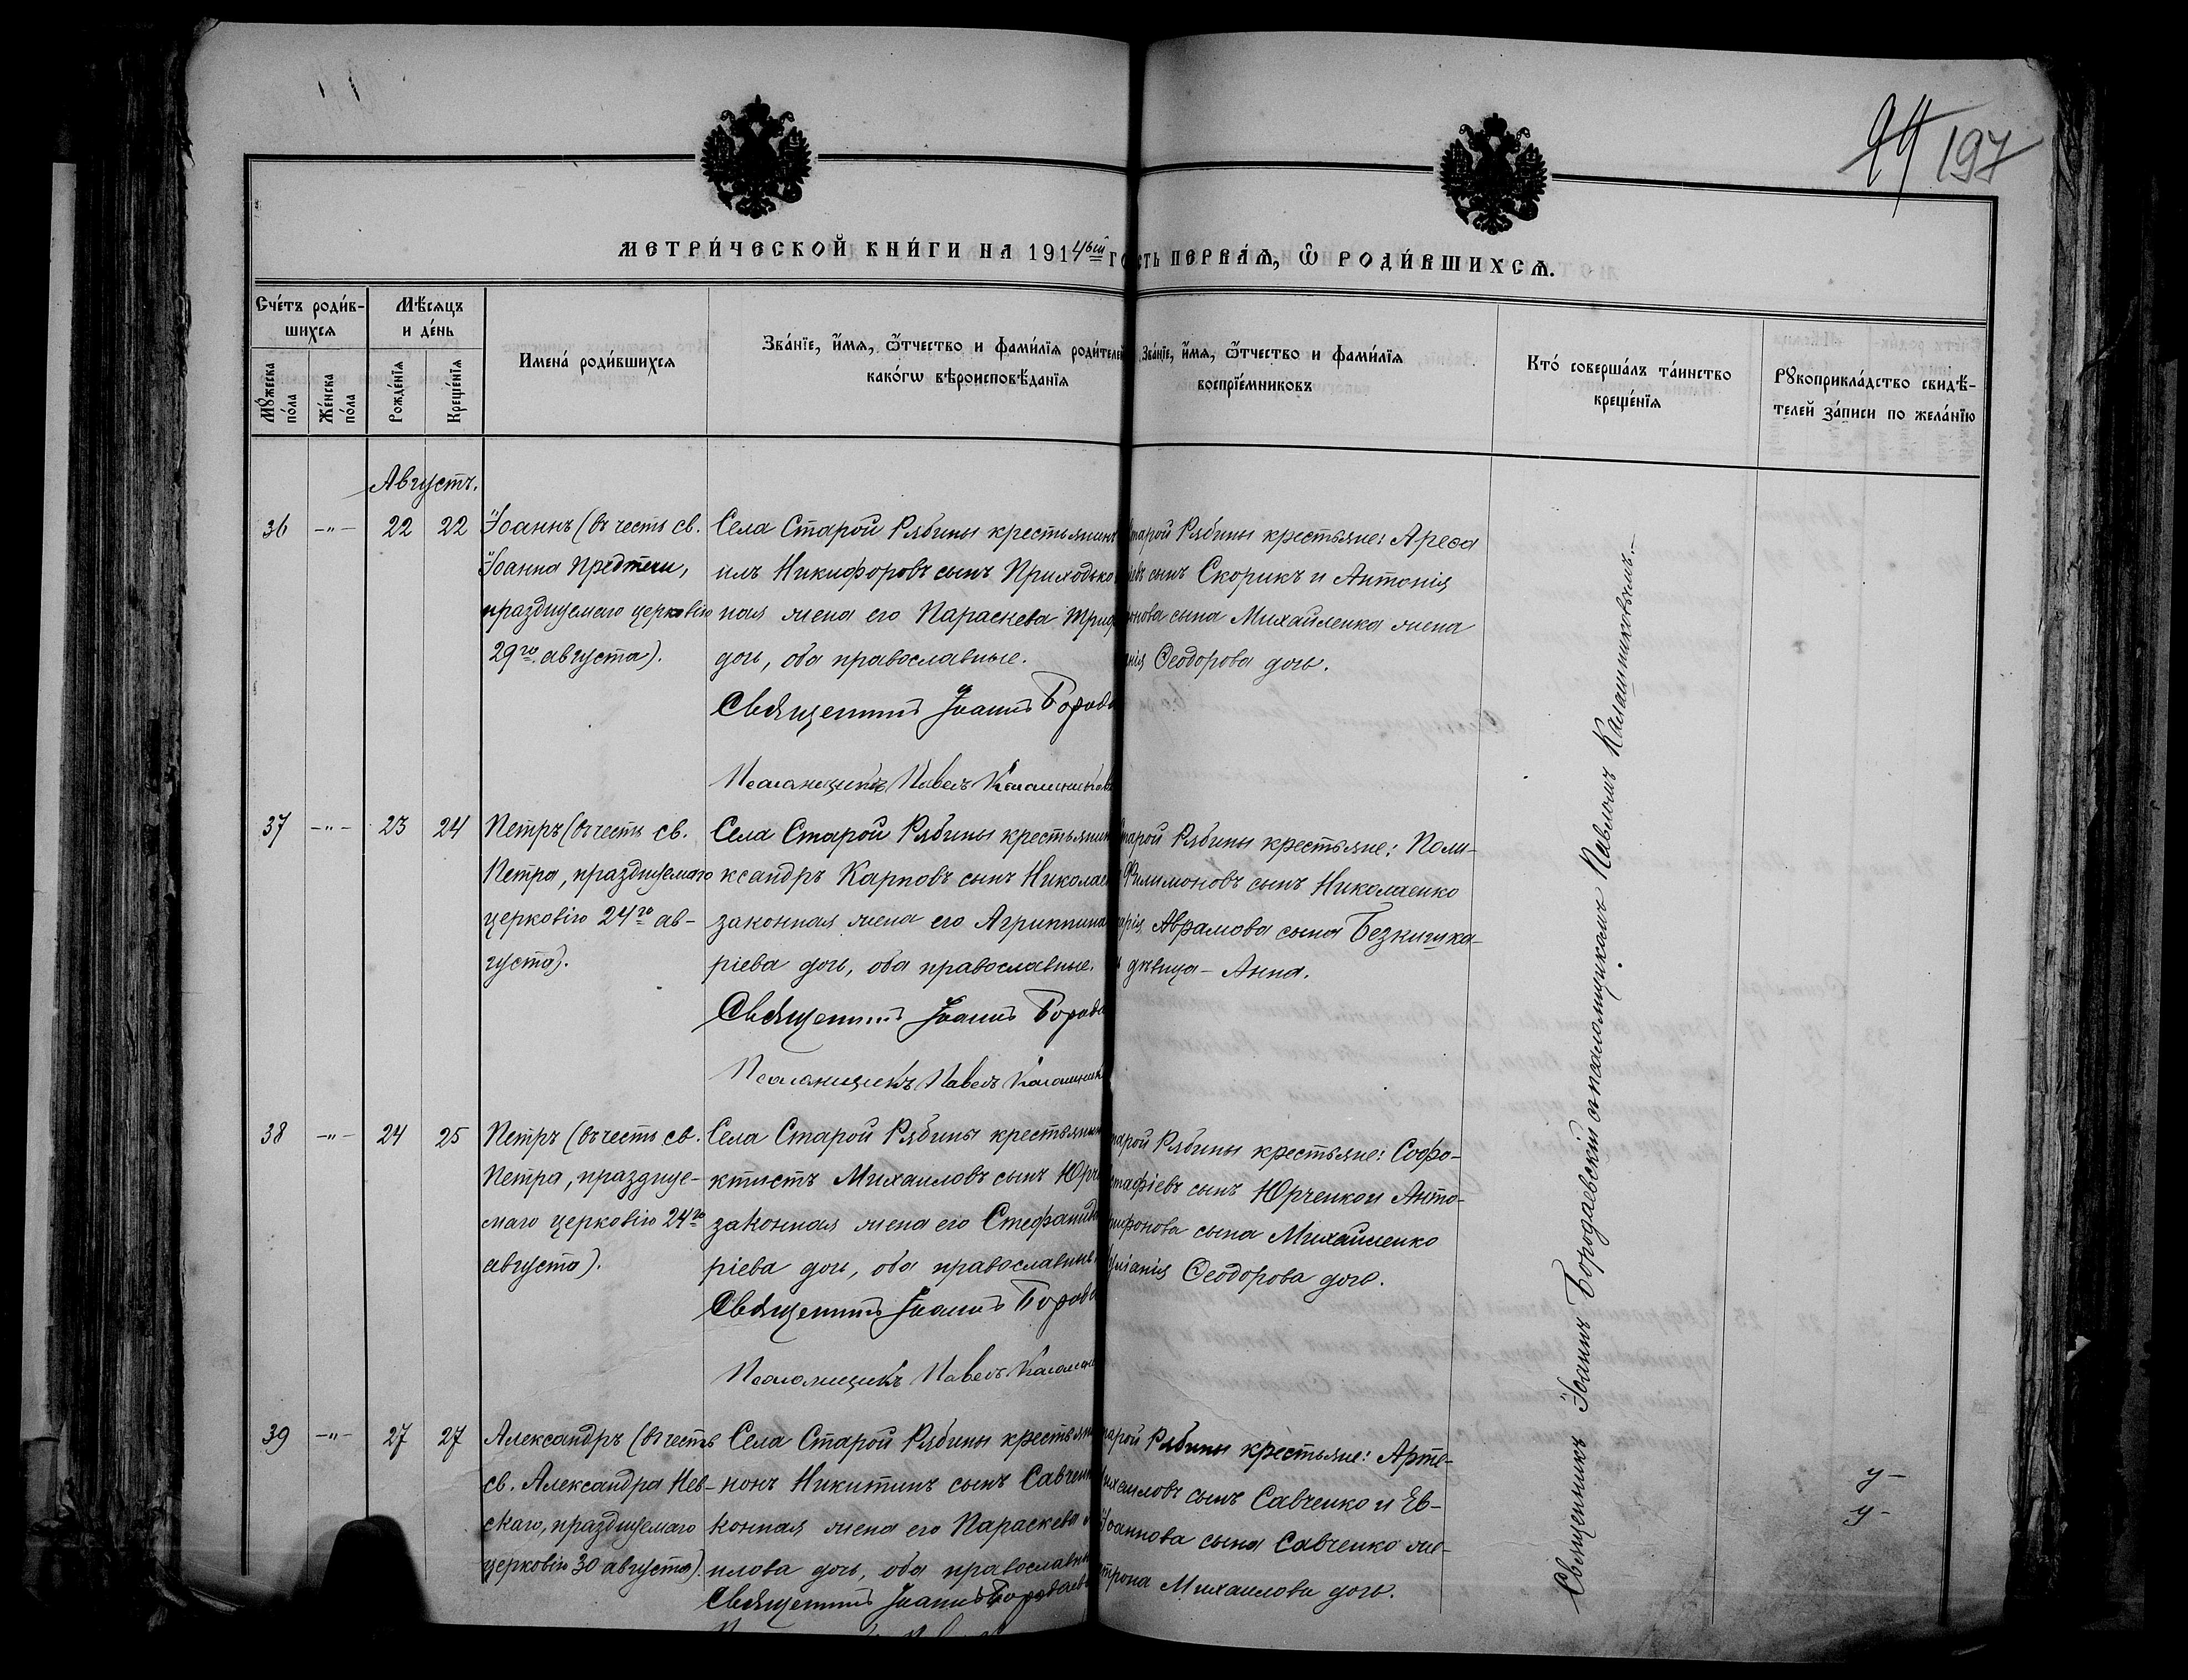 94 197
МЕТРИ́ЧЕСКОЙ КНИ́ГИ НА 1914ый
ПЕРВА́Ѧ, Ѿ РОДИ́ВШИХСѦ.
Сче́тъ роди́в-
шихсѧ
Мѣ́сѧцъ
и де́нь
Мꙋ́жеска
по́ла
Же́нска
по́ла
Рожде́нїѧ
Креще́нїѧ
Имена́ роди́вшихсѧ
Зва́нїе, и҆́мѧ, ѻ҆́тчество и фами́лїѧ родителей
како́гѡ вѣроисповѣ́данїѧ
Зва́нїе, и҆́мѧ, ѻ҆́тчество и фами́лїѧ
воспрїе́мниковъ
Кто́ соверша́лъ та́инство
креще́нїѧ
Рꙋкоприкла́дство свидѣ́-
телей за́писи по жела́нїю
Августъ.
36 -"- 22 22
Іоаннъ (въ честь св.
Іоанна Предтечи,
празднуемаго церковію
29го августа).
Села Старой Рябины крестьянинъ
илъ Никифоровъ сынъ Приходько
ная жена его Параскева Триф
дочь, оба православные.
Священникъ Іоаннъ Борода
Псаломщикъ Павелъ Калашников
тарой Рябины крестьяне: Ареѳа
іевъ сынъ Скорикъ и Антонія
онова сына Михайленка жена
анія Ѳеодорова дочь.
37 -"- 23 24
Петръ (въ честь св.
Петра, празднуемаго
церковію 24го ав-
густа).
Села Старой Рябины крестьянин
ксандръ Карповъ сынъ Николае
законная жена его Агриппина
ріева дочь, оба православные.
Священникъ Іоаннъ Борода
Псаломщикъ Павелъ Калашник
тарой Рябины крестьяне: Поли-
Филимоновъ сынъ Николаенко
арія Аврамова сына Безкишка-
дѣвица - Анна.
38 -"- 24 25
Петръ (въ честь св.
Петра, праздnуе-
маго церковію 24го
августа).
Села Старой Рябины крестьянин
ктистъ Михаиловъ сынъ Юрч
законная жена его Стефанида
ріева дочь, оба православны
Священникъ Іоаннъ Борода
Псаломщикъ Павелъ Калашн
тарой Рябины крестьяне: Софо-
стафіевъ сынъ Юрченко и Анто-
рифонова сына Михайленко
уліанія Ѳеодорова дочь.
39 -"- 27 27
Александръ (въ честь
св. Александра Нев-
скаго, празднуемаго
церковію 30 августа).
Села Старой Рябины крестьян
нонъ Никитинъ сынъ Савченк
конная жена его Параскева
илова дочь, оба православны
Священникъ Іоаннъ Бородаев
тарой Рябины крестьяне: Арте-
ихаиловъ сынъ Савченко и Ев-
Іоаннова сына Савченко же-
трона Михаилова дочь.
Священникъ Іоаннъ Бородаевскій съ псаломщикомъ Павломъ Калашниковымъ.-
у-
у-